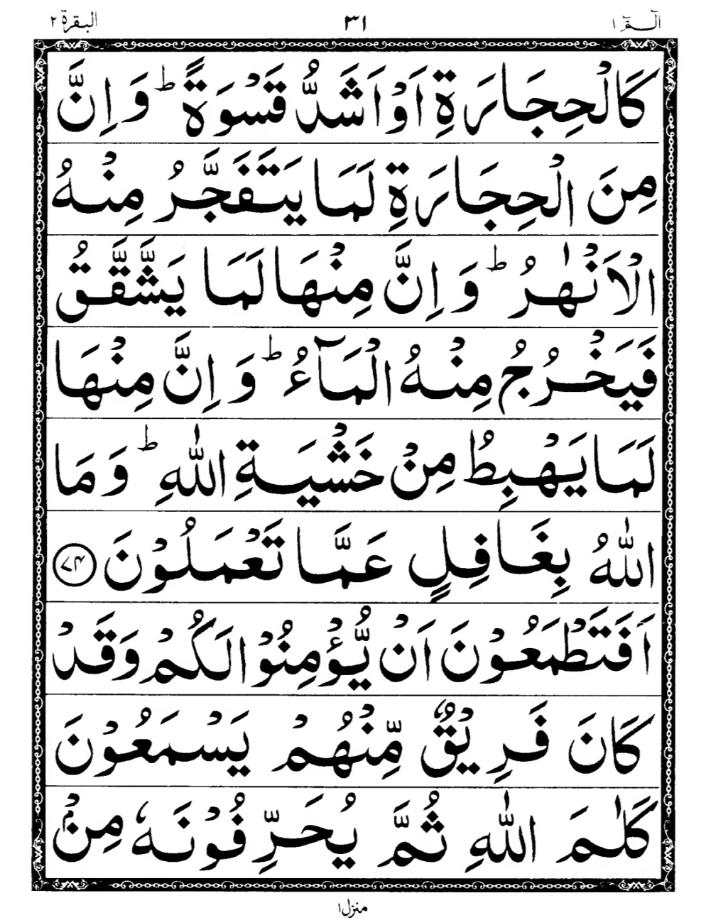 الٓمّٓ ١ ٣١ البقرة ٢
كَالْحِجَارَةِ اَوْ اَشَدُّ قَسْوَةً ؕ وَ اِنَّ
مِنَ الْحِجَارَةِ لَمَا يَتَفَجَّرُ مِنْهُ
الْاَنْهٰرُ ؕ وَ اِنَّ مِنْهَا لَمَا يَشَّقَّقُ
فَيَخْرُجُ مِنْهُ الْمَآءُ ؕ وَ اِنَّ مِنْهَا
لَمَا يَهْبِطُ مِنْ خَشْيَةِ اللّٰهِ ؕ وَ مَا
اللّٰهُ بِغَافِلٍ عَمَّا تَعْمَلُوْنَ ﴿۷۴﴾
اَفَتَطْمَعُوْنَ اَنْ يُّؤْمِنُوْا لَكُمْ وَ قَدْ
كَانَ فَرِيْقٌ مِّنْهُمْ يَسْمَعُوْنَ
كَلٰمَ اللّٰهِ ثُمَّ يُحَرِّفُوْنَهٗ مِنْۢ
منزل ١